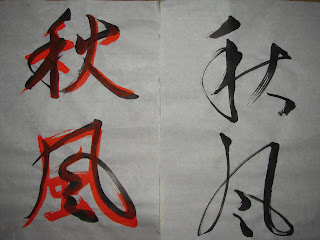 秋風
秋風